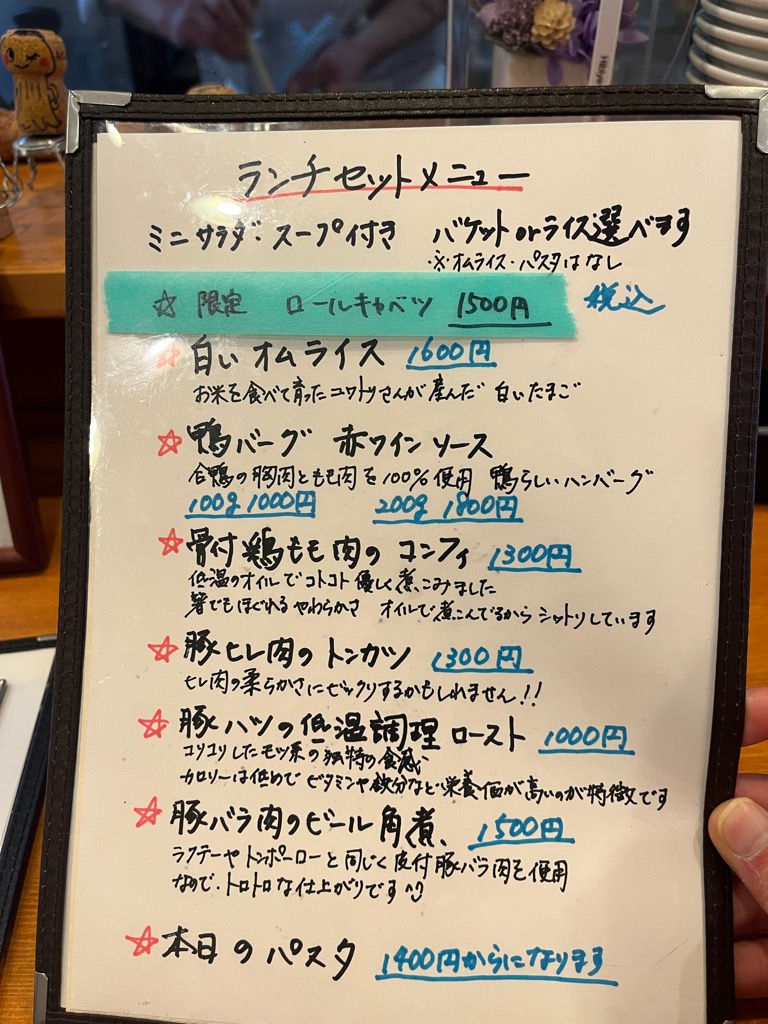 ランチセットメニュー
ミニサラダ・スープ付き バケットorライス選べます
※オムライス・パスタはなし
☆ 限定 ロールキャベツ 1500円 税込
☆ 白いオムライス 1600円
お米を食べて育ったニワトリさんが産んだ 白いたまご
☆ 鴨バーグ 赤ワインソース
合鴨の胸肉ともも肉を100%使用 鴨らしいハンバーグ
100g 1000円 200g 1800円
☆ 骨付鶏もも肉のコンフィ 1300円
低温のオイルでコトコト優しく煮こみました
箸でもほぐれるやわらかさ オイルで煮こんでるからシットリしています
☆ 豚ヒレ肉のトンカツ 1300円
ヒレ肉の柔らかさにビックリするかもしれません!!
☆ 豚ハツの低温調理ロースト 1000円
コリコリしたモツ系の独特の食感
カロリーは低めでビタミンや鉄分など栄養価が高いのが特徴です
☆ 豚バラ肉のビール角煮、 1500円
ラフテーやトンポーローと同じく皮付豚バラ肉を使用
なので、トロトロな仕上がりです
☆ 本日のパスタ 1400円からになります